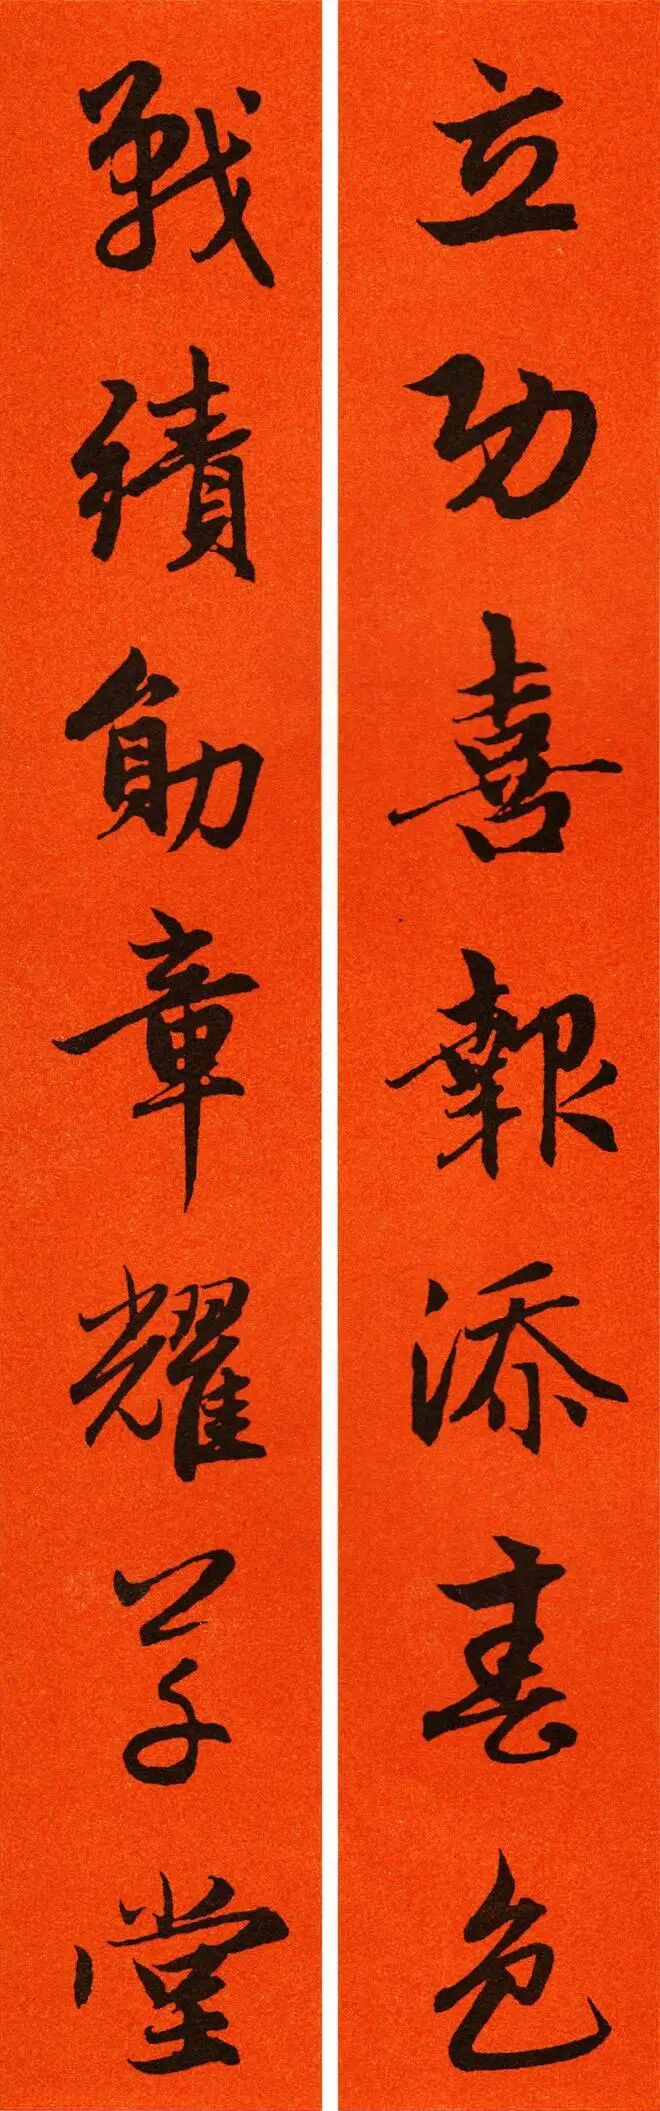 立功喜報添春色
戰績勛章耀草堂